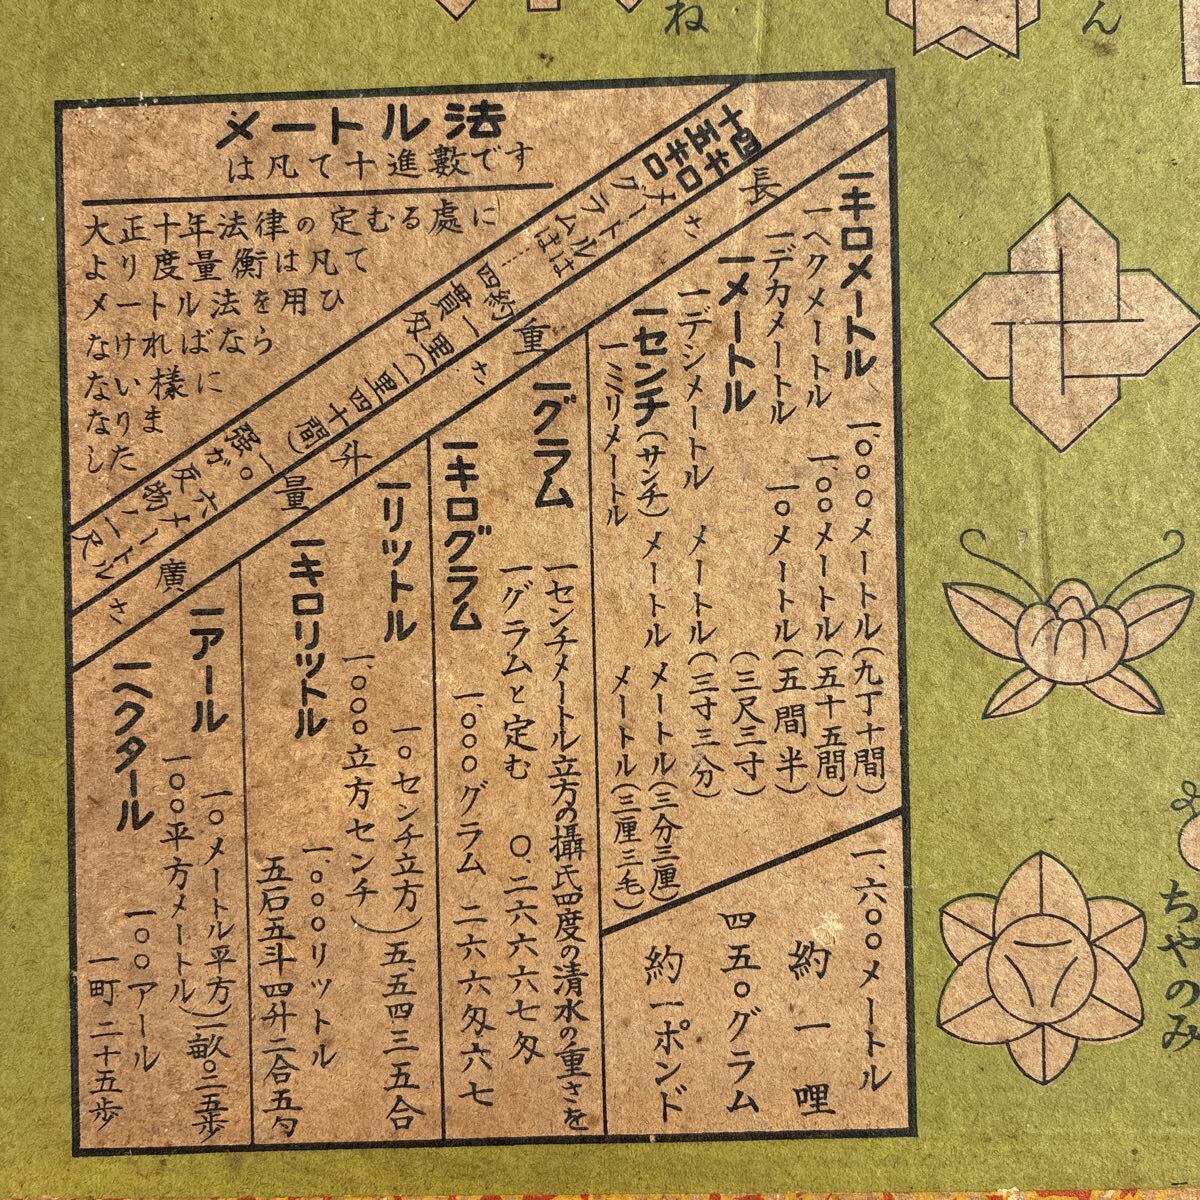 ね
ん
メートル法
は凡て十進數です
大正十年法律の定むる處に
より度量衡は凡て
メートル法を用ひ
なければなら
ない様に
なりま
した
十四キロ
五キロ
メートルは
グラムは
約一里(一里四十間)
四貫匁
強
長さ
一キロメートル 一、〇〇〇メートル(九丁十間)
一ヘクメートル 一、〇〇メートル(五十五間)
一デカメートル 一〇メートル(五間半)
一メートル (三尺三寸)
一デシメートル メートル(三寸三分)
一センチ(サンチ)メートル メートル(三分三厘)
一ミリメートル メートル(三厘三毛)
一、六〇〇メートル
約一哩
四五〇グラム
約一ポンド
重さ
一グラム 一センチメートル立方の攝氏四度の清水の重さを
一グラムと定む 〇、二六六六七匁
一キログラム 一、〇〇〇グラム 二六六匁六七
升量
一リットル 一〇センチ立方
一、〇〇〇立方センチ) 五、五四三五五合
一キロリットル 一、〇〇〇リットル
五石五斗四升二合五勺
廣さ
一アール 一〇メートル平方
一〇〇平方メートル) 一畝〇二五歩
一ヘクタール 一〇〇アール
一町二十五歩
ちやのみ